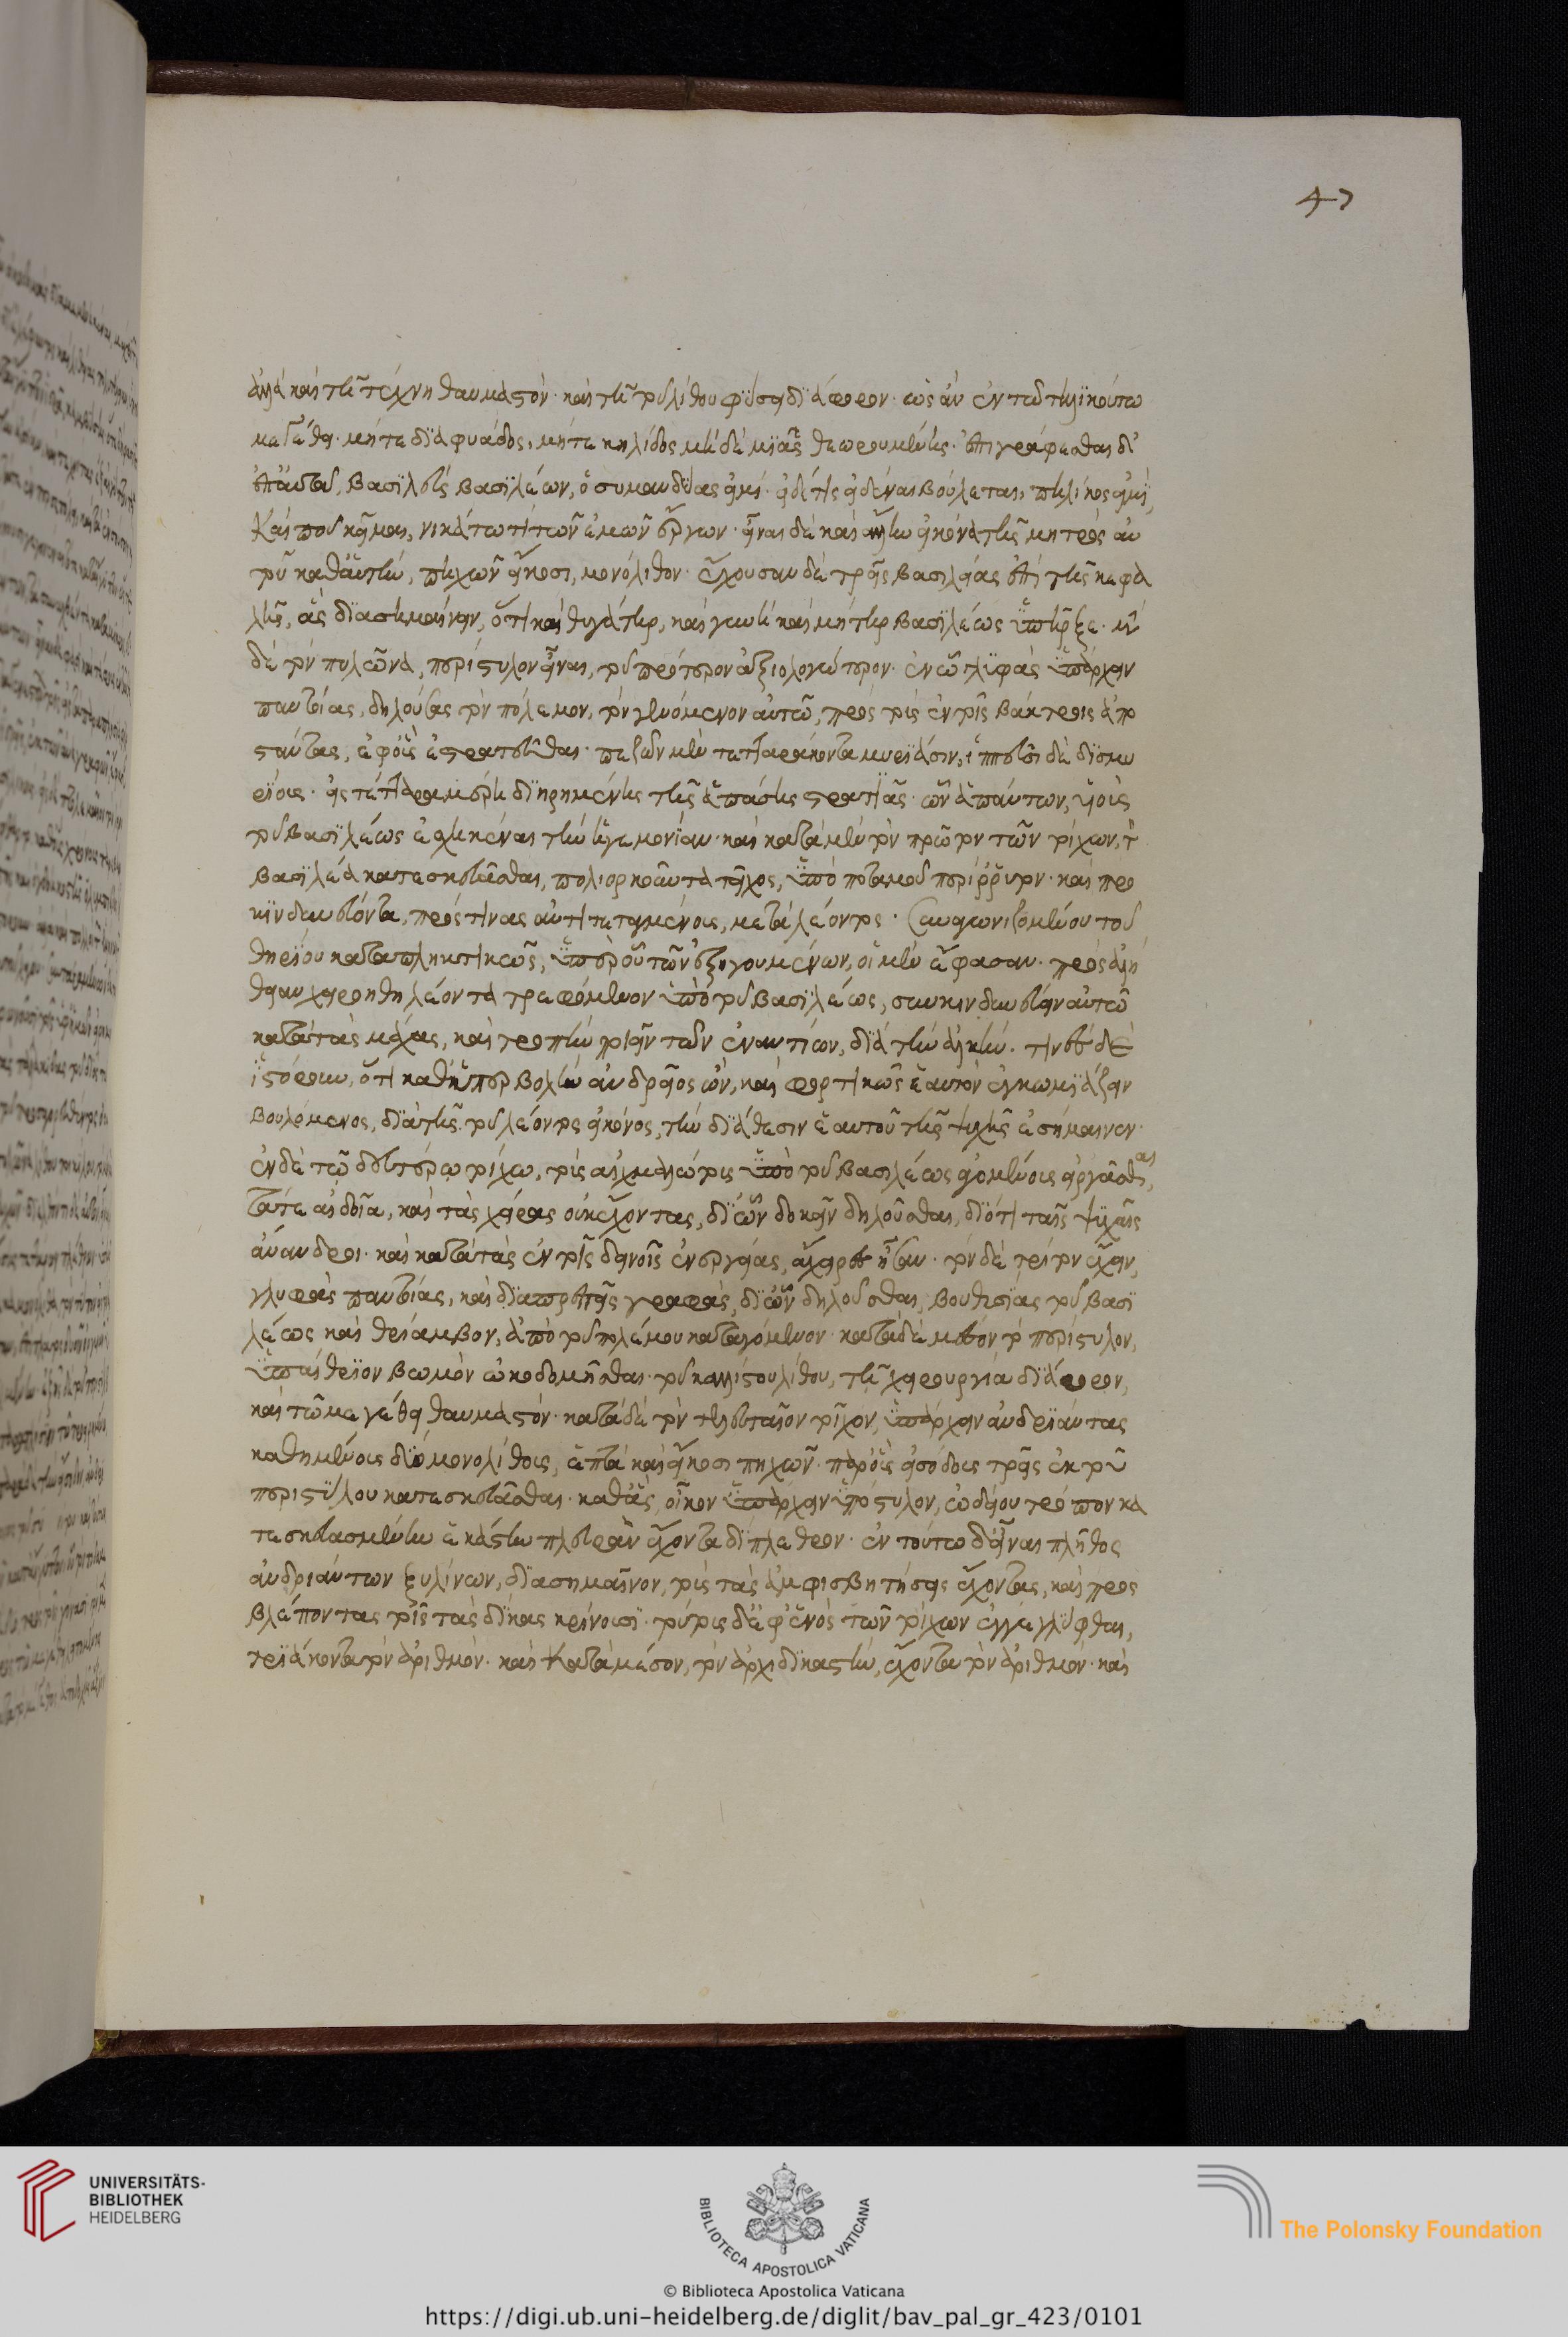 47
ἀλλὰ καὶ τῆ τέχνη θαυμαστὸν· καὶ τῆ τοῦ λίθου φύσει διάφορον· ὡς ἂν ἐν τῶ τηλικούτω
μεγέθει· μήτε διαφυάδος, μήτε κηλίδος μηδὲ μιᾶς θεωρουμένης· ἐπιγράφεσθαι δ'
ἐπαυτοῦ, βασιλεὺς βασιλέων, ὁσυμανδύας εἰμί· εἰδέτις εἰδέναι βούλεται, πηλίκος εἰμὶ,
καὶ ποῦ κεῖμαι, νικάτω τὶ τῶν ἐμῶν ἔργων· εἶναι δὲ καὶ ἄλλην εἰκόνα τῆς μητρὸς αὐ
τοῦ καθἁυτὴν, πηχῶν εἴκοσι, μονόλιθον· ἔχουσαν δὲ τρεῖς βασιλείας ἐπὶ τῆς κεφα
λῆς, ἃς διασημαίνειν, ὅτι καὶ θυγάτηρ, καὶ γυνὴ καὶ μήτηρ βασιλέως ὑπῆρξε· μετὰ
δὲ τὸν πυλῶνα, περίστυλον εἶναι, τοῦ πρότερον ἀξιολογώτερον· ἐν ὧ γλυφὰς ὑπάρχειν
παντοίας, δηλούσας τὸν πόλεμον, τὸν γενόμενον αὐτῶ, πρὸς τοὺς ἐν τοῖς βάκτροις ἀπο
στάντας, ἐφ' οὓς ἐστρατεῦσθαι· πεζῶν μὲν τετταράκοντα μυριάσιν, ἱππεῦσι δὲ δισμυ
ρίοις· εἰς τέτταρα μέρη διηρημένης τῆς ἁπάσης στρατιᾶς· ὧν ἁπάντων, υἱοὺς
τοῦ βασιλέως ἐσχηκέναι τὴν ἡγεμονίαν· καὶ κατὰ μὲν τὸν πρῶτον τῶν τοίχων, τὸν
βασιλέα κατεσκευᾶσθαι, πολιορκοῦντα τεῖχος, ὑπὸ ποταμοῦ περίῤῥυτον· καὶ προ
κινδυνεύοντα, πρός τινας ἀντιτεταγμένους, μετὰ λέοντος· συναγωνιζομένου τοῦ
θηρίου καταπληκτικῶς, ὑπὲρ οὗ τῶν ἐξηγουμένων, οἱ μὲν ἔφασαν· πρὸς ἀλή
θειαν χειροήθη λέοντα τρεφόμενον ὑπὸ τοῦ βασιλέως, συγκινδυνεύειν αὐτῶ
κατὰ τὰς μάχας, καὶ τροπὴν ποιεῖν τῶν ἐναντίων, διὰ τὴν ἀλκὴν. τινὲς δὲ
ἱστόρουν, ὅτι καθ' ὑπερβολὴν ἀνδρεῖος ὢν, καὶ φορτικῶς ἑαυτὸν ἐγκωμιάζειν
βουλόμενος, διὰ τῆς τοῦ λέοντος εἰκόνος, τὴν διάθεσιν ἑαυτοῦ τῆς ψυχῆς ἐσήμαινεν·
ἐν δὲ τῶ δευτέρω τοίχω, τοὺς αἰχμαλώτους ὑπὸ τοῦ βασιλέως ἀγομένους εἰργάσθαι,
τά τε αἰδοῖα, καὶ τὰς χεῖρας οὐκ ἔχοντας, δι' ὧν δοκεῖν δηλοῦσθαι, διότι ταῖς ψυχαῖς
ἄνανδροι· καὶ κατὰ τὰς ἐν τοῖς δεινοῖς ἐνεργείας, ἄχειρες ἦσαν· τὸν δὲ τρίτον ἔχειν,
γλυφὰς παντοίας, καὶ διαπρεπεῖς γραφὰς, δι' ὧν δηλοῦσθαι, βουθυσίας τοῦ βασι
λέως καὶ θρίαμβον, ἀπὸ τοῦ πολέμου καταγόμενον· κατὰ δὲ μέσον τὸ περίστυλον,
ὑπαίθριον βωμὸν ὠκοδομῆσθαι· τοῦ καλλίστου λίθου, τῆ χειρουργία διάφορον,
καὶ τῶ μεγέθει θαυμαστόν· κατὰ δὲ τὸν τελευταῖον τοῖχον, ὑπάρχειν ἀνδριάντας
καθημένους δύο μονολίθους, ἑπτὰ καὶ εἴκοσι πηχῶν· παρ' οὓς εἰσόδους τρεῖς ἐκ τοῦ
περιστύλου κατεσκευᾶσθαι· καθ' ἃς, οἶκον ὑπάρχειν ὑπόστυλον, ὠδείου τρόπον κα
τεσκευασμένην ἑκάστην πλευρὰν ἔχοντα δίπλεθρον· ἐν τούτω δ' εἶναι πλῆθος
ἀνδριάντων ξυλίνων, διασημαῖνον, τοὺς τὰς ἀμφισβητήσεις ἔχοντας, καὶ προς
βλέποντας τοῖς τὰς δίκας κρίνουσι· τούτους δ' ἐφ' ἑνὸς τῶν τοίχων ἐγγεγλύφθαι,
τριάκοντα τὸν ἀριθμόν· καὶ κατὰ μέσον, τὸν ἀρχιδικαστὴν, ἔχοντα τὸν ἀριθμόν· καὶ
UNIVERSITÄTS-
BIBLIOTHEK
HEIDELBERG
BIBLIOTECA APOSTOLICA VATICANA
The Polonsky Foundation
© Biblioteca Apostolica Vaticana
https://digi.ub.uni-heidelberg.de/diglit/bav_pal_gr_423/0101